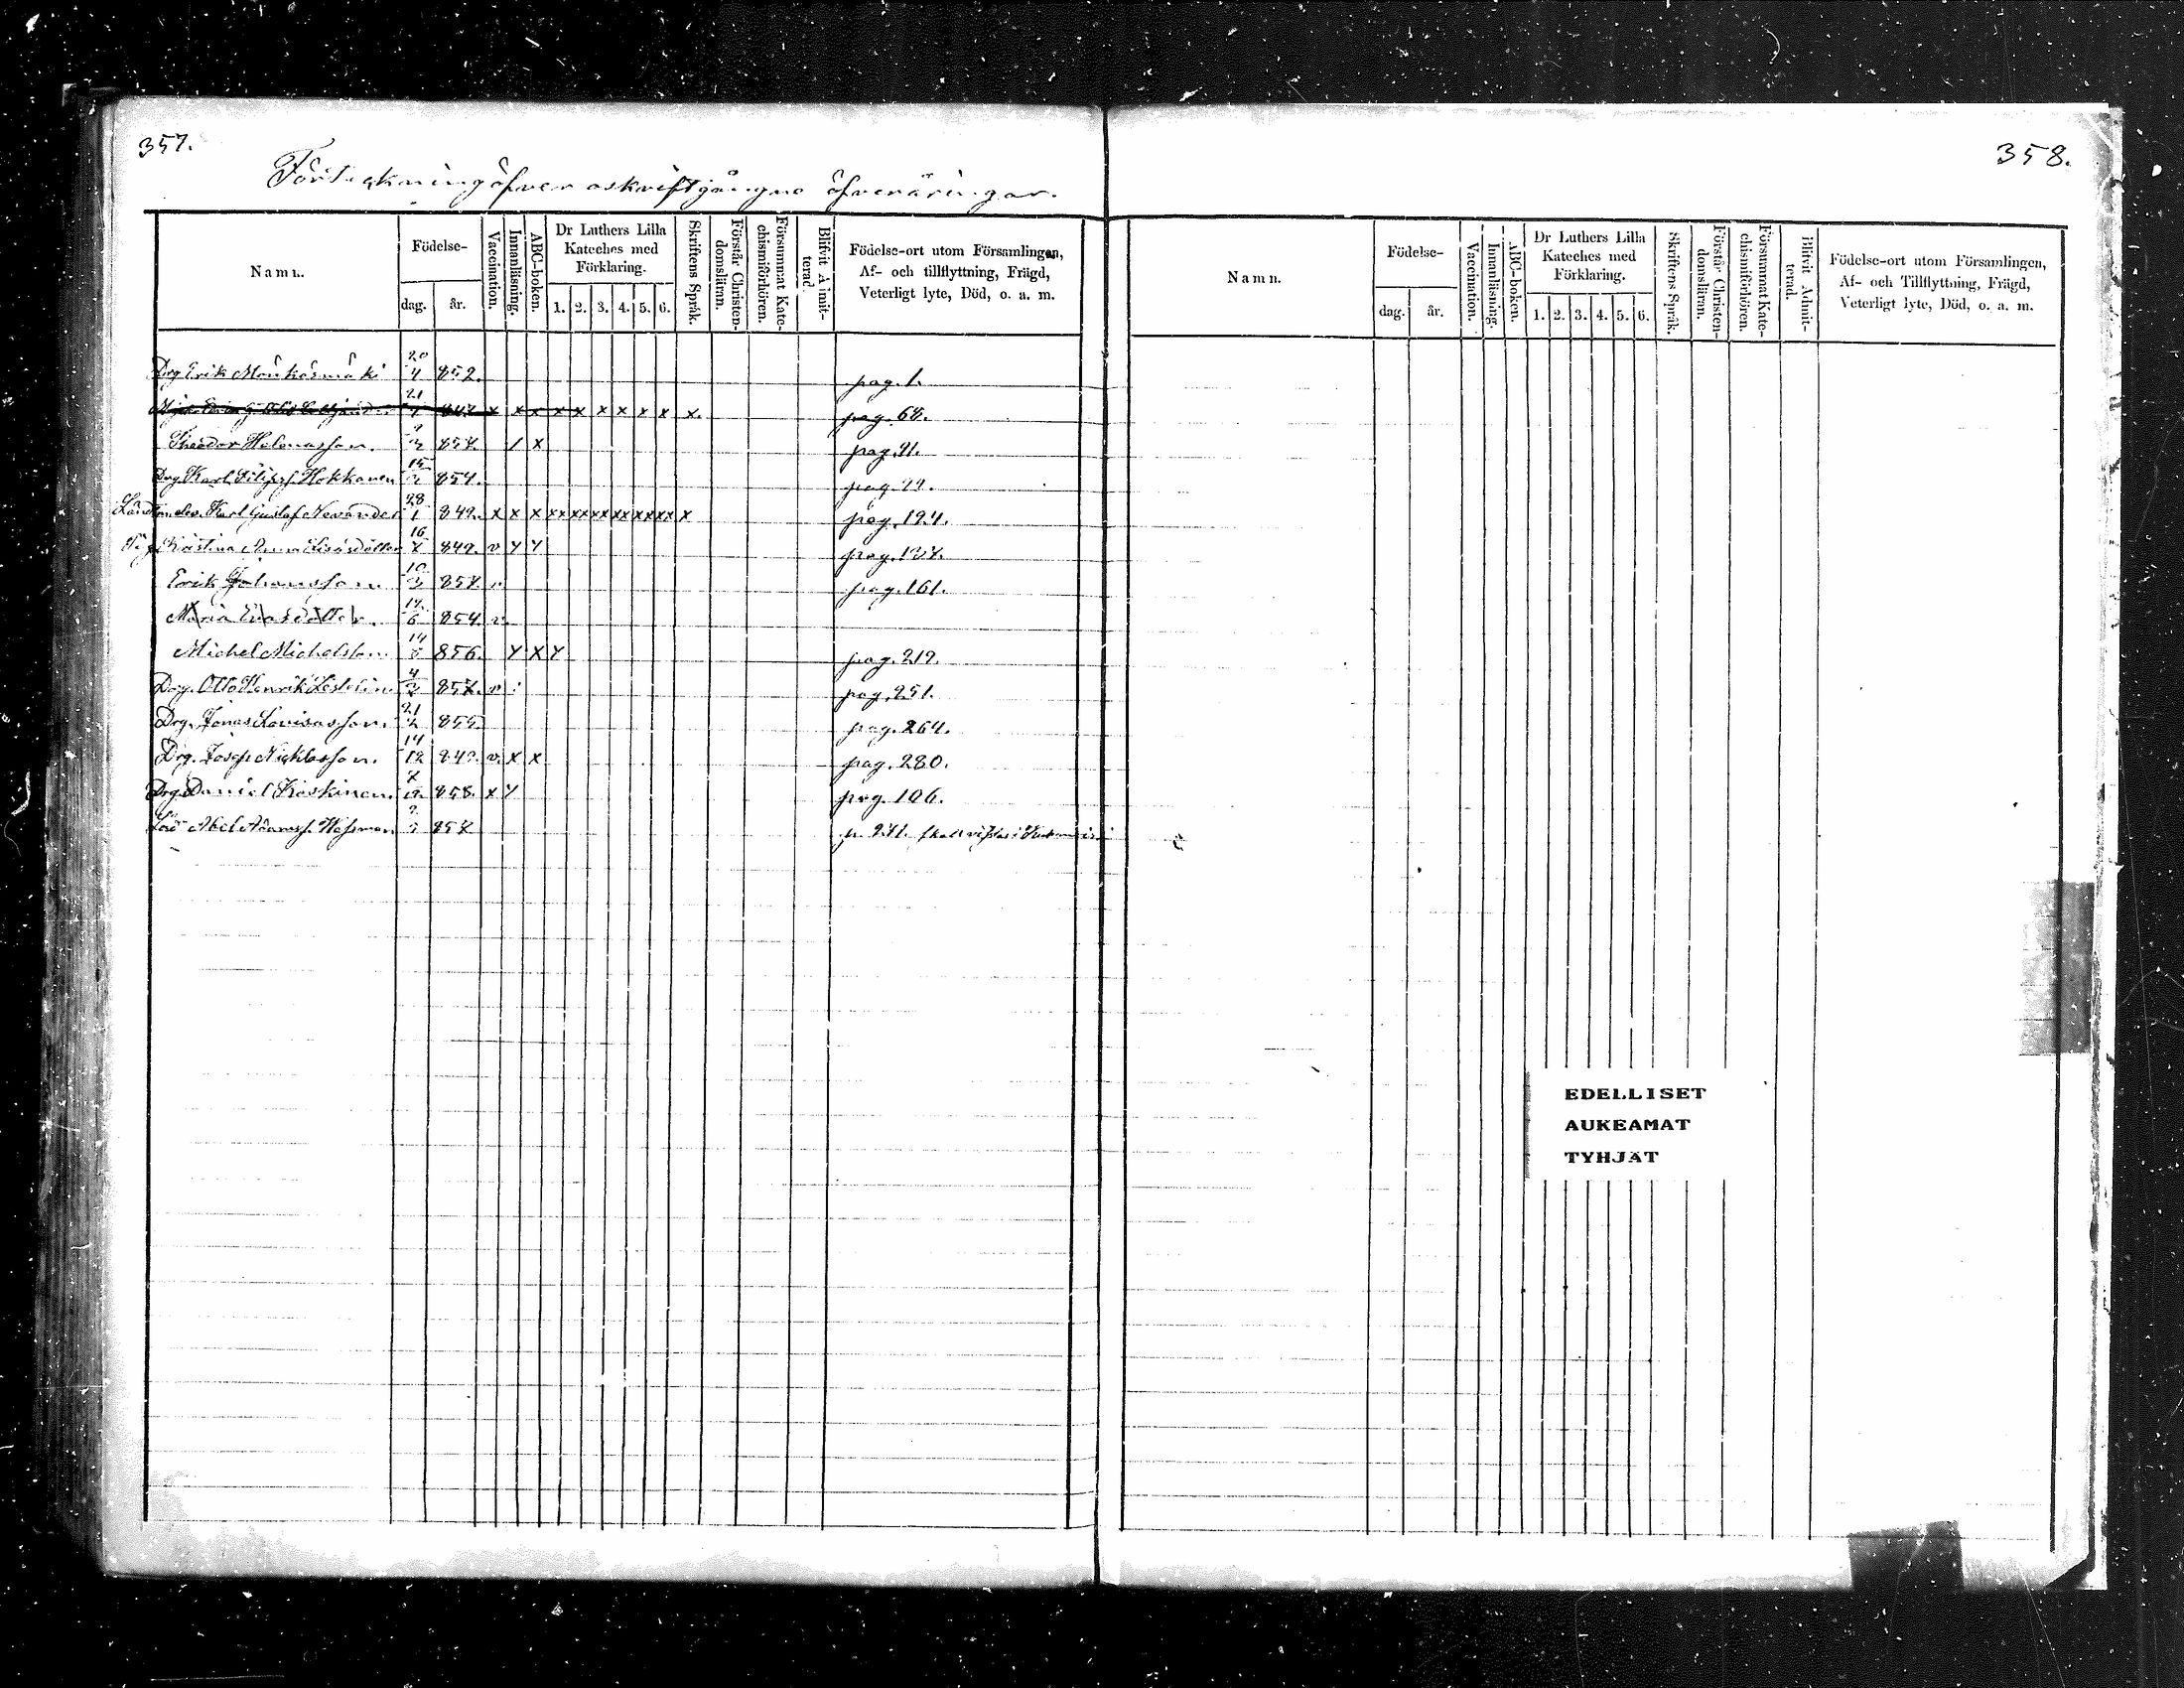 357.
Förteckning öfver oskriftgångne öfveråringar.
Namn. Födelse- dag. år. Vaccination. Innanläsning. ABC-boken. Dr Luthers Lilla Kateches med Förklaring. 1. 2. 3. 4. 5. 6. Skriftens Språk. Förstår Christendomsläran. Försummat Katechismiförhören. Blifvit Admitterad. Födelse-ort utom Församlingen, Af- och tillflyttning, Frägd, Veterligt lyte, Död, o. a. m.
Drg Erik 20/4 852. pag. 1.
21 847 x x x x x x x x x x. pag. 68.
Theodor Helenasson. 857. / x pag. 91.
Drg Karl Hokkanen 15 854. pag.
Karl Gustaf Nevander 28/1 849. x x x xx xx xx xx xx xx x pag. 194.
Kristina 16 849. v Y Y pag. 137.
Erik Johansson 10/3 857. v. pag. 161.
Maria Evasdotter. 6 854. v.
Michel Michelsson 14 856. Y X Y pag. 219.
Drg. Otto Henrik 4 857. v pag. 251.
Drg. Jonas Lovisasson. 21/2 855. pag. 264.
Drg. Josep Nicklasson. 14/12 849. v. x x pag. 280.
Drg. Daniel Koskinen. 858. x Y pag. 106.
Abel 857 p. 271.
358.
Namn. Födelse- dag. år. Vaccination. Innanläsning. ABC-boken. Dr Luthers Lilla Kateches med Förklaring. 1. 2. 3. 4. 5. 6. Skriftens Språk. Förstår Christendomsläran. Försummat Katechismiförhören. Blifvit Admitterad. Födelse-ort utom Församlingen, Af- och Tillflyttning, Frägd, Veterligt lyte, Död, o. a. m.
EDELLISET
AUKEAMAT
TYHJÄT